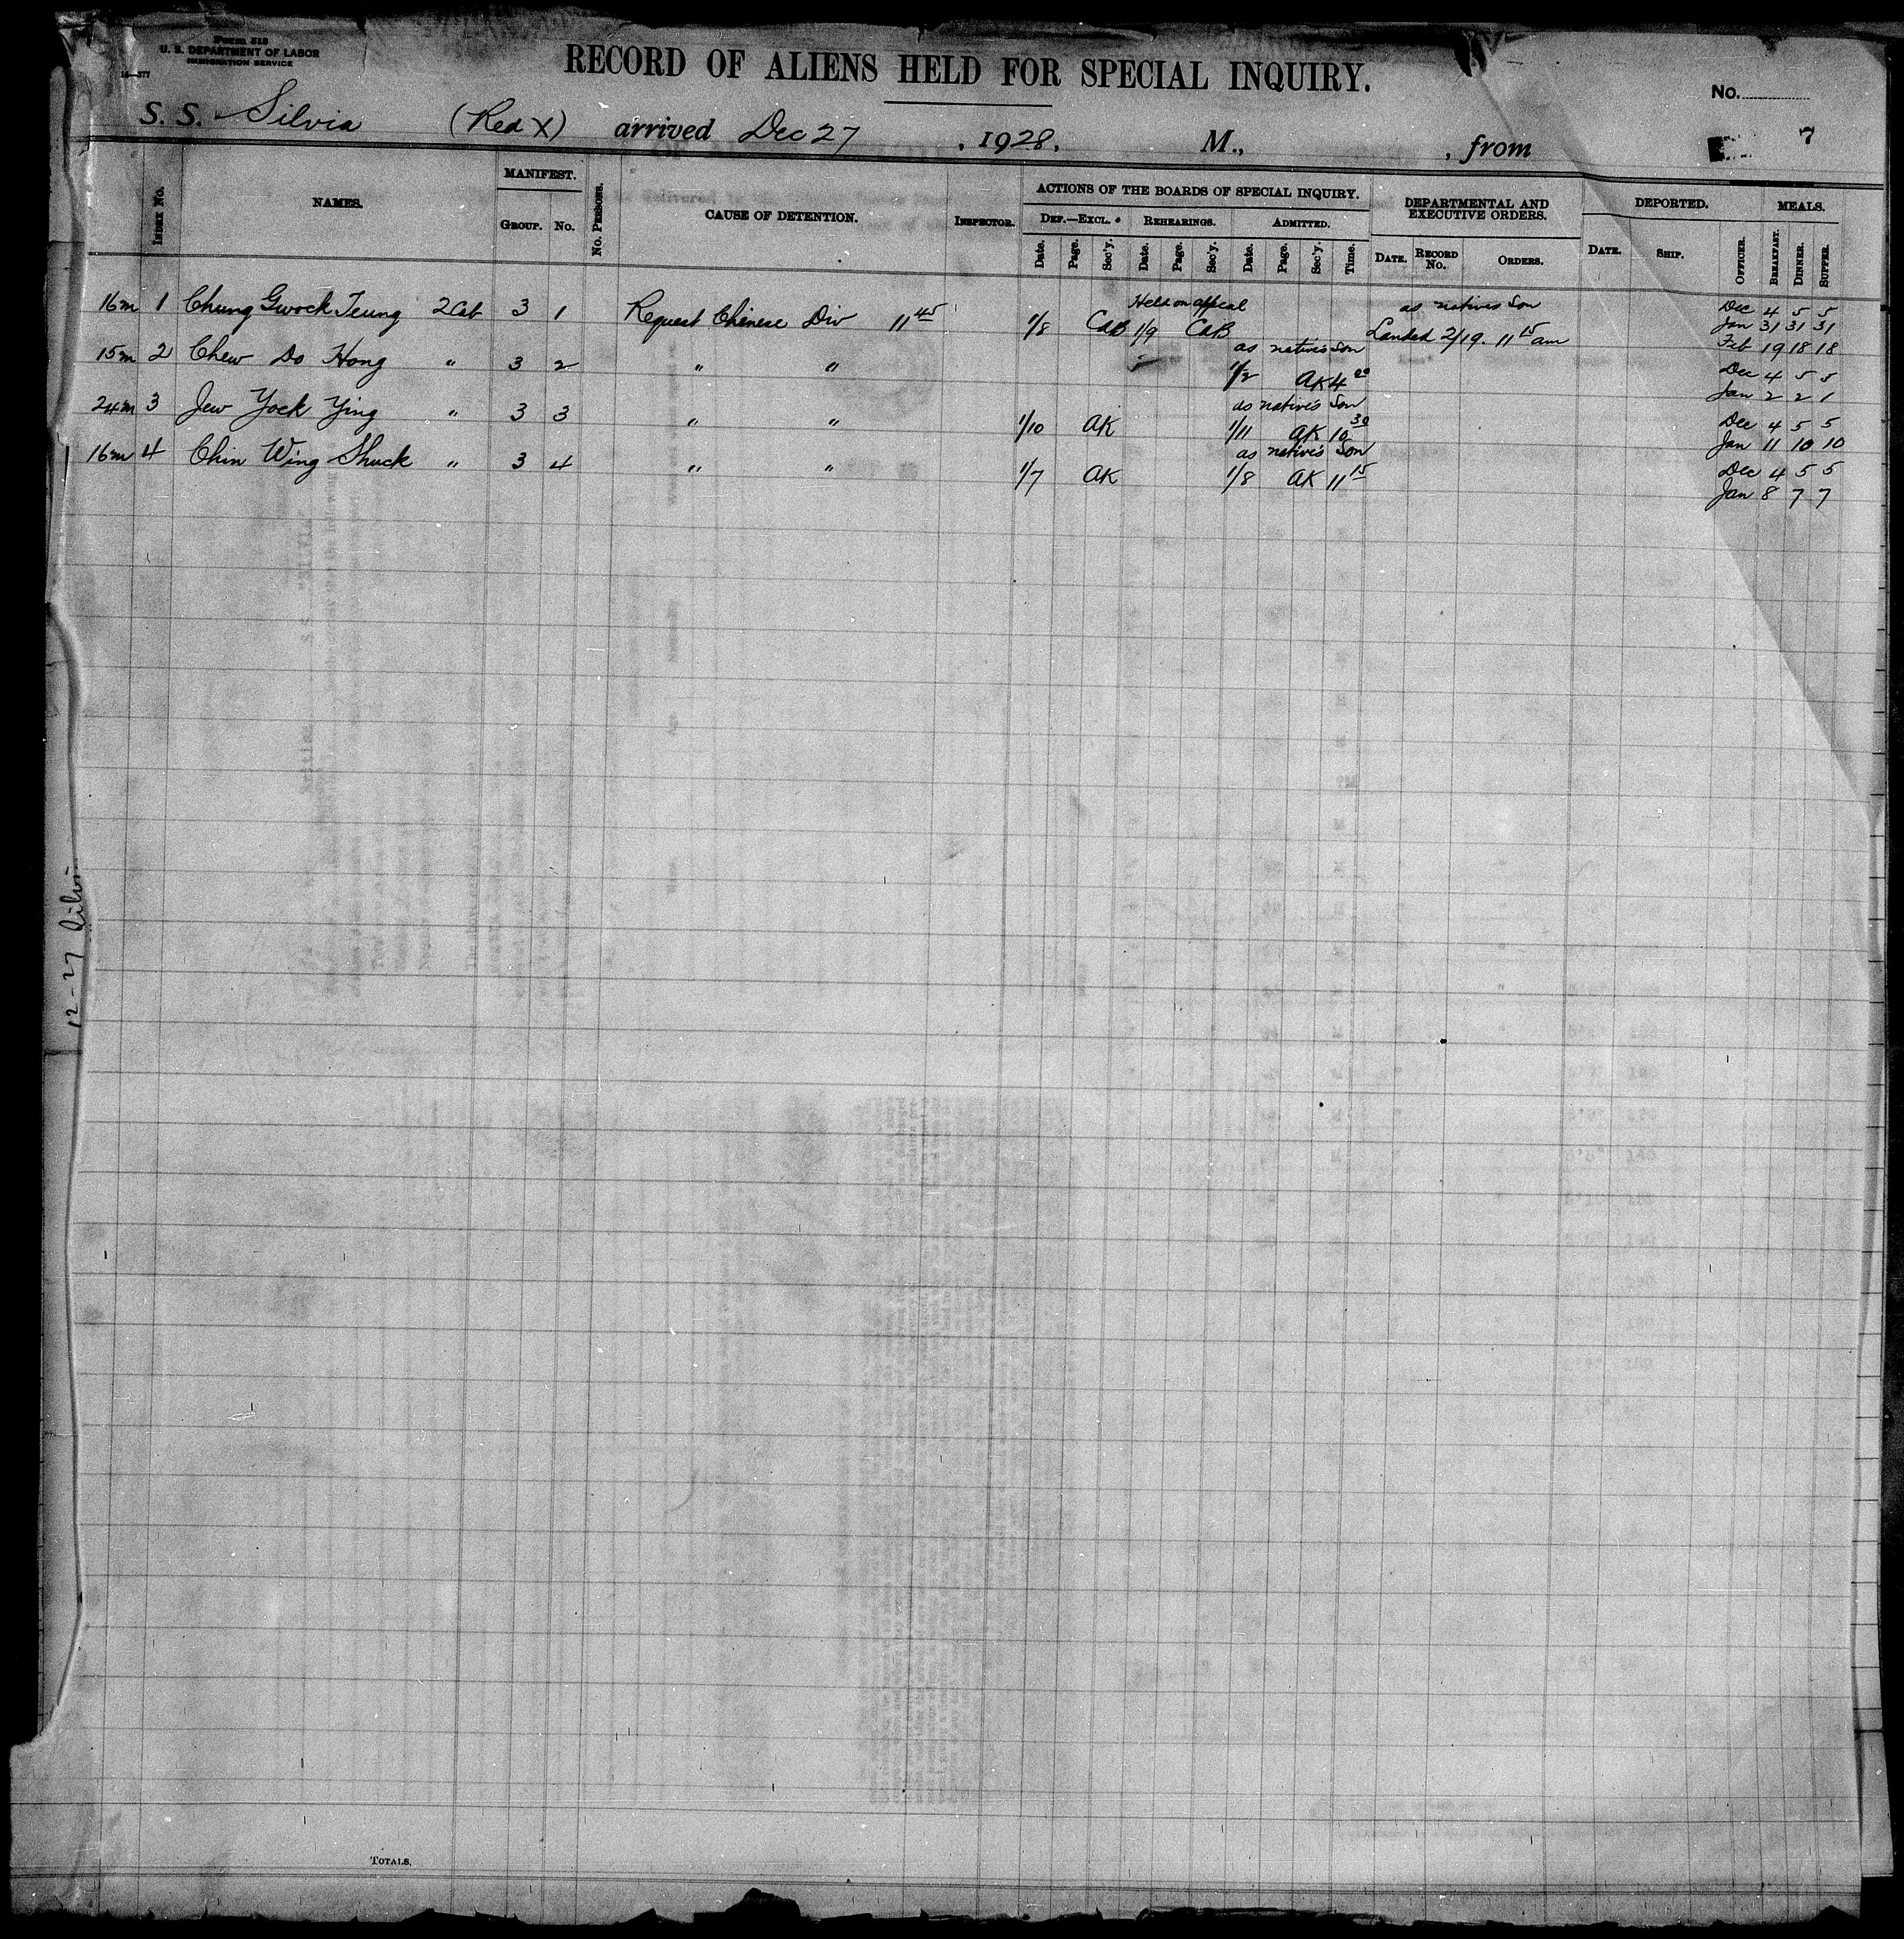 Form 518
U. S. DEPARTMENT OF LABOR
IMMIGRATION SERVICE
14—377
RECORD OF ALIENS HELD FOR SPECIAL INQUIRY.
No.
S. S. Silvia (Red X) arrived Dec 27, 1928, M., , from 7
Index No. NAMES. MANIFEST. GROUP. No. No. PERSONS. CAUSE OF DETENTION. INSPECTOR. ACTIONS OF THE BOARDS OF SPECIAL INQUIRY. DEF.—EXCL. Date. Page. Sec'y. REHEARINGS. Date. Page. Sec'y. ADMITTED. Date. Page. Sec'y. Time. DEPARTMENTAL AND EXECUTIVE ORDERS. DATE. RECORD No. ORDERS. DEPORTED. DATE. SHIP. OFFICER. MEALS. BREAKFAST. DINNER. SUPPER.
Held on appeal as natives Son Dec 4 5 5
16m 1 Chung Gwock Teung 2 Cab 3 1 Request Chinese Div 11 45 1/8 CAB 1/9 CAB Landed 2/19. 11 15 am Jan 31 31 31
as natives Son Feb 19 18 18
15m 2 Chew Do Hong " 3 2 " " 1/2 AK 4 00 Dec 4 5 5
as natives Son Jan 2 2 1
24m 3 Jew Yock Ying " 3 3 " " 1/10 AK 1/11 AK 10 30 Dec 4 5 5
as natives Son Jan 11 10 10
16m 4 Chin Wing Shuck " 3 4 " " 1/7 AK 1/8 AK 11 15 Dec 4 5 5
Jan 8 7 7
12-27 Silvia
TOTALS.